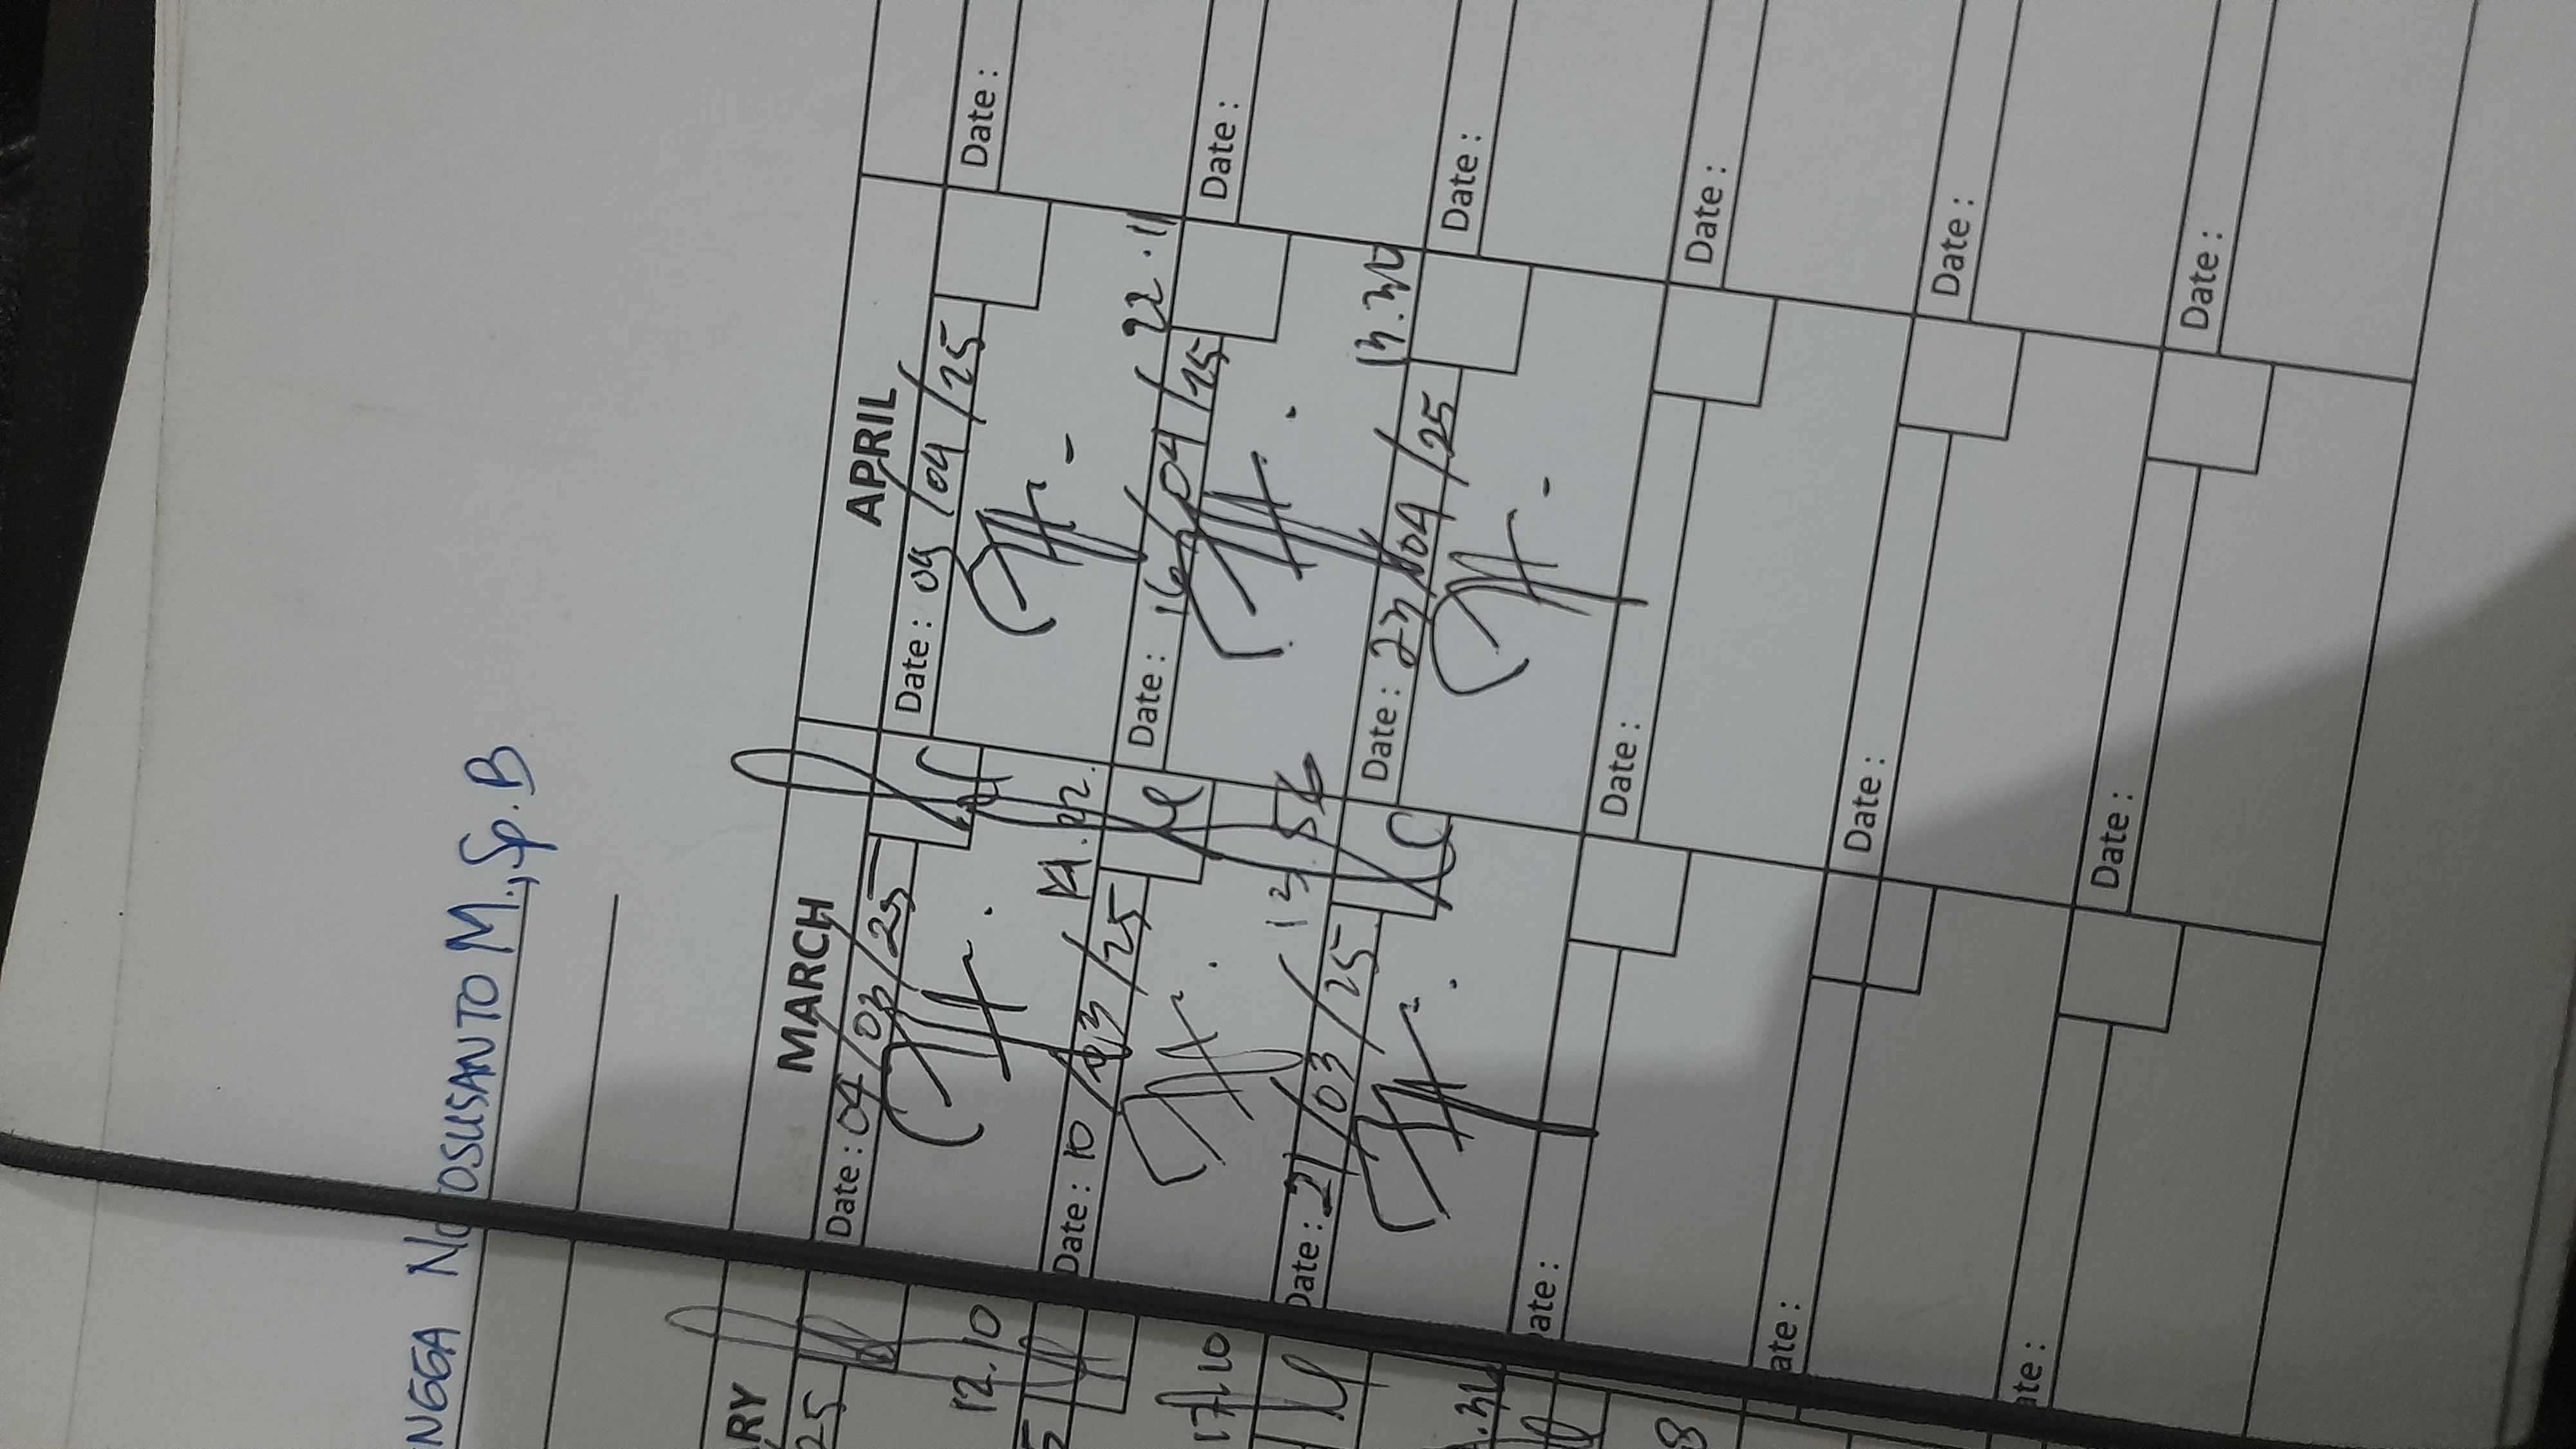 NGGA NOTOSUSANTO M., Sp.B
RY MARCH APRIL
25 Date : 04/03/25 Date : 09/04/25 Date :
12.10 14.22. 22.11
5 Date : 10/03/25 Date : 16/04/25 Date :
17.10 13.56
Date : 21/03/25 Date : 23/04/25 Date :
ate : Date : Date :
8
ate : Date : Date :
te : Date : Date :